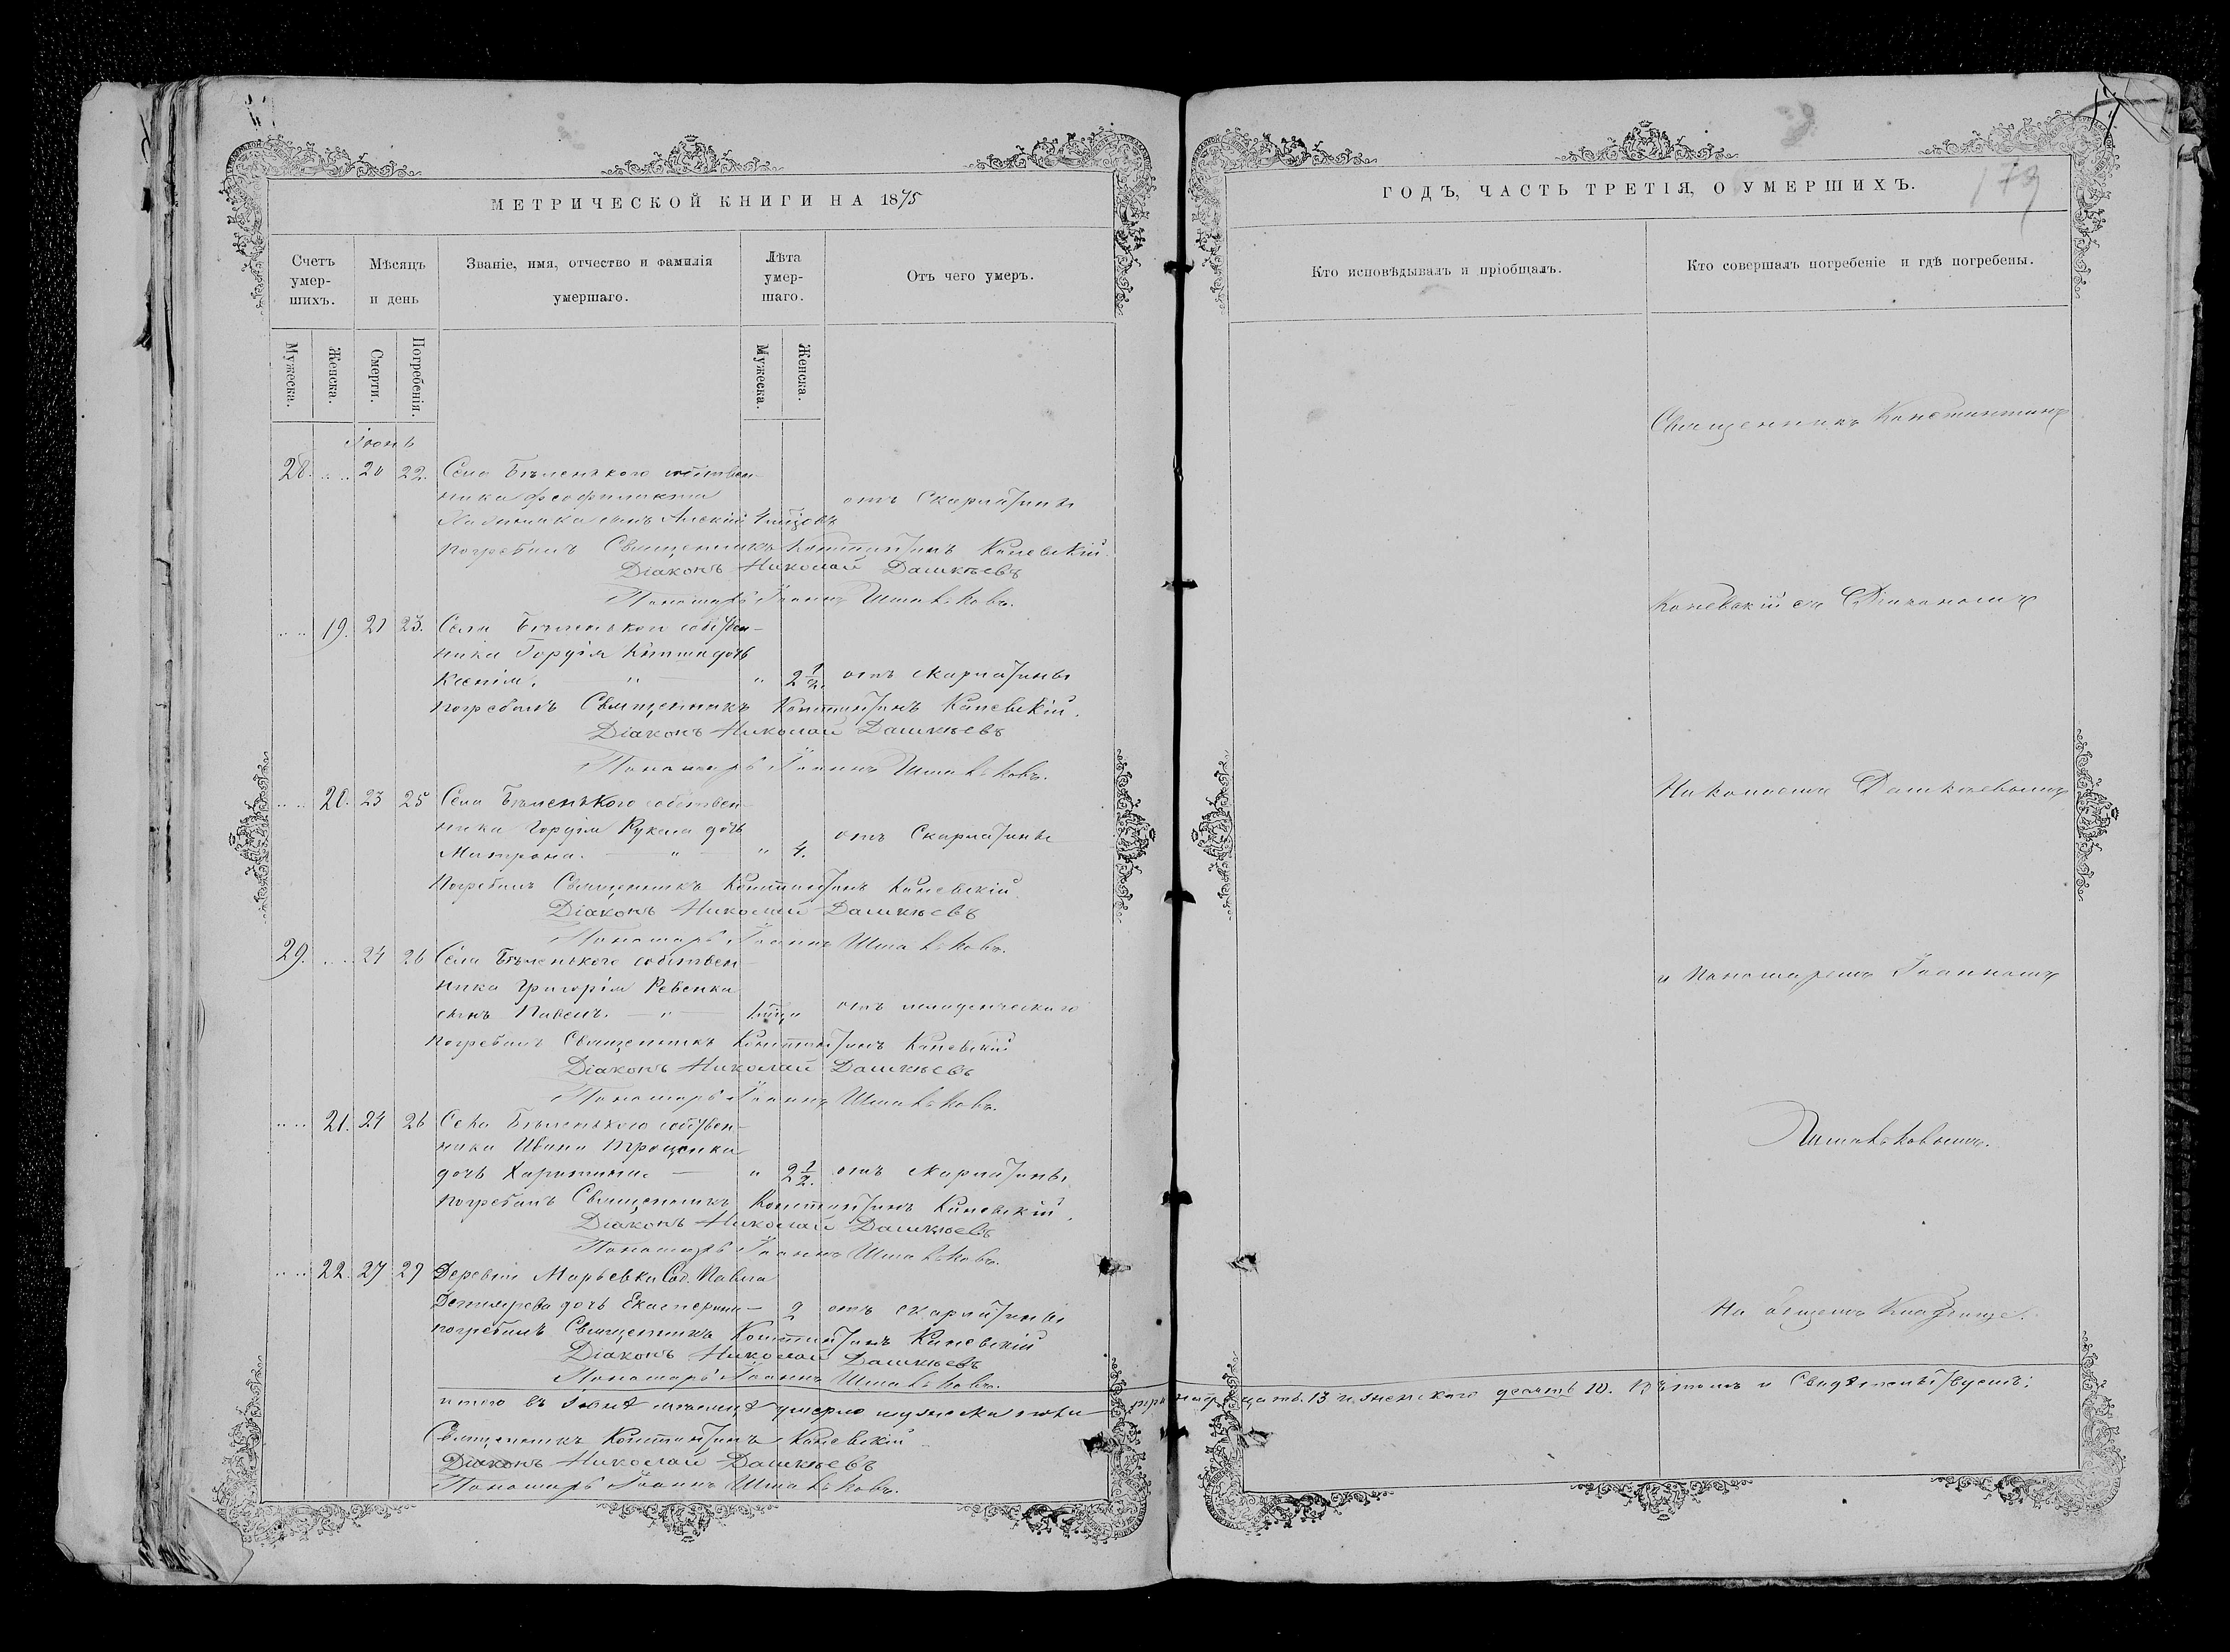 МЕТРИЧЕСКОЙ КНИГИ НА 1875
Счетъ умер-шихъ.
Мѣсяцъ и день
Званіе, имя, отчество и фамилія умершаго.
Лѣта умер-шаго.
Отъ чего умеръ.
Мужеска.
Женска.
Смерти.
Погребенія.
Мужеска.
Женска.
Іюнь
28. 20 22. Села Бѣленького собствен-
ника Феофилакта отъ Скарлатины
сынъ Алексій
погребалъ Священникъ Константинъ Каневскій.
Діаконъ Николай Дашкѣевъ
Пономарь Іоаннъ
19. 21 23. Села Бѣленького собствен-
ника Гордія дочь
Ксенія. " " 2 1/2. отъ скарлатины
погребалъ Священникъ Константинъ Каневскій.
Діаконъ Николай Дашкѣевъ
Пономарь Іоаннъ
20. 23 25 Села Бѣленького собствен-
ника Гордія дочь отъ Скарлатины
Матрона. " " 4.
Погребалъ Священникъ Константинъ Каневскій
Діаконъ Николай Дашкѣевъ
Пономарь Іоаннъ
29. 24 26 Села Бѣленького собствен-
ника Григорія Ревенка
сынъ Павелъ. " отъ младенческаго
погребалъ Священникъ Константинъ Каневскій
Діаконъ Николай Дашкѣевъ
Пономарь Іоаннъ
21. 24 26 Села Бѣленького собствен-
ника Ивана Троценка
дочь Харитина. " 2 1/2. отъ скарлатины
погребалъ Священникъ Константинъ Каневскій.
Діаконъ Николай Дашкѣевъ
Пономарь Іоаннъ
22. 27 29 Деревни Марьевки Соб. Павла
дочь Екатерина 2 отъ скарлатины
погребалъ Священникъ Константинъ Каневскій
Діаконъ Николай Дашкѣевъ
Пономарь Іоаннъ
итого въ Іюнѣ мѣсяцѣ умерло мужеска пола тринадцать 13 и женского десять 10. Въ томъ и Свидѣтельствуемъ:
Священникъ Константинъ Каневскій
Діаконъ Николай Дашкѣевъ
Пономарь Іоаннъ
ГОДЪ, ЧАСТЬ ТРЕТІЯ, О УМЕРШИХЪ.
Кто исповѣдывалъ и пріобщалъ.
Кто совершалъ погребеніе и гдѣ погребены.
Священникъ Константинъ
Каневскій съ Діакономъ
Николаемъ Дашкѣевымъ
и Пономаремъ Іоанномъ
На общемъ Кладбище.